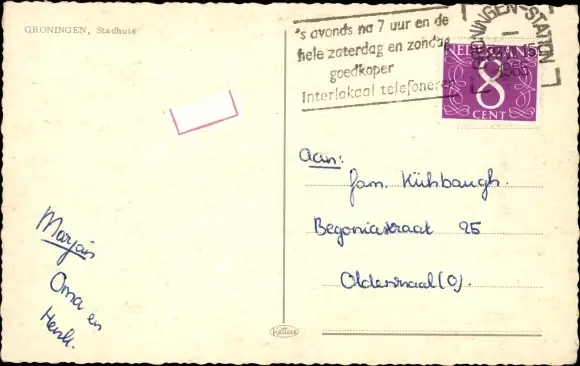 GRONINGEN, Stadhuis
's avonds na 7 uur en de
hele zaterdag en zondag
goedkoper
Interlokaal telefoneren
GRONINGEN-STATION
1965
NEDERLAND
8
CENT
Aan:
fam. Kühbaugh.
Begoniastraat 25
Oldenzaal (O).
Marjan
Oma en
Henk.